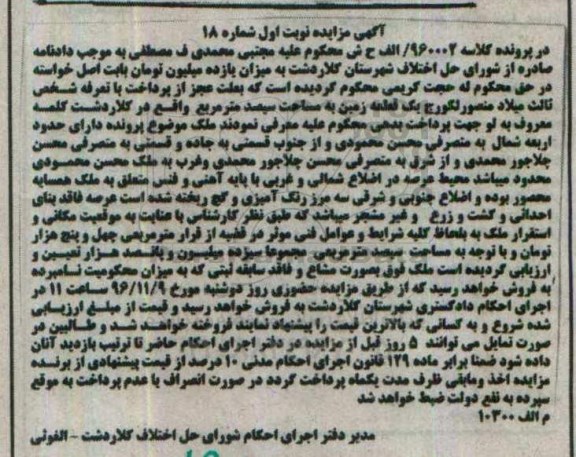 آگهی مزایده نوبت اول شماره ۱۸
در پرونده کلاسه ۹۶۰۰۰۲/ الف ح ش محکوم علیه مجتبی محمدی ف مصطفی به موجب دادنامه
صادره از شورای حل اختلاف شهرستان کلاردشت به میزان یازده میلیون تومان بابت اصل خواسته
در حق محکوم له حجت کریمی محکوم گردیده است که بعلت عجز از پرداخت با تعرفه شخص
ثالث میلاد منصورلکورج یک قطعه زمین به مساحت سیصد مترمربع واقع در کلاردشت کلمه
معروف به لو جهت پرداخت بدهی محکوم علیه معرفی نمودند ملک موضوع پرونده دارای حدود
اربعه شمال به متصرفی محسن محمودی و از جنوب قسمتی به جاده و قسمتی به متصرفی محسن
چلاجور محمدی و از شرق به متصرفی محسن چلاجور محمدی وغرب به ملک محسن محمودی
محدود میباشد محیط عرصه در اضلاع شمالی و غربی با پایه آهنی و فنس متعلق به ملک همسایه
محصور بوده و اضلاع جنوبی و شرقی سه مرز رنگ آمیزی و گچ ریخته شده است عرصه فاقد بنای
احداثی و کشت و زرع و غیر مشجر میباشد که طبق نظر کارشناس با عنایت به موقعیت مکانی و
استقرار ملک به بلحاظ کلیه شرایط و عوامل فنی موثر در قضیه از قرار مترمربعی چهل و پنج هزار
تومان و با توجه به مساحت سیصد مترمربعی مجموعا سیزده میلیون و پانصد هزار تعیین و
ارزیابی گردیده است ملک فوق بصورت مشاع و فاقد سابقه ثبتی که به میزان محکومیت نامبرده
به فروش خواهد رسید که از طریق مزایده حضوری روز دوشنبه مورخ ۹۶/۱۱/۹ ساعت ۱۱ در
اجرای احکام دادگستری شهرستان کلاردشت به فروش خواهد رسید و قیمت از مبلغ ارزیابی
شده شروع و به کسانی که بالاترین قیمت را پیشنهاد نمایند فروخته خواهد شد و طالبین در
صورت تمایل می توانند ۵ روز قبل از مزایده در دفتر اجرای احکام حاضر تا ترتیب بازدید آنان
داده شود ضمنا برابر ماده ۱۲۹ قانون اجرای احکام مدنی ۱۰ درصد از قیمت پیشنهادی از برنده
مزایده اخذ ومابقی ظرف مدت یکماه پرداخت گردد در صورت انصراف یا عدم پرداخت به موقع
سپرده به نفع دولت ضبط خواهد شد
م الف ۱۰۳۰۰
مدیر دفتر اجرای احکام شورای حل اختلاف کلاردشت - الفوتی